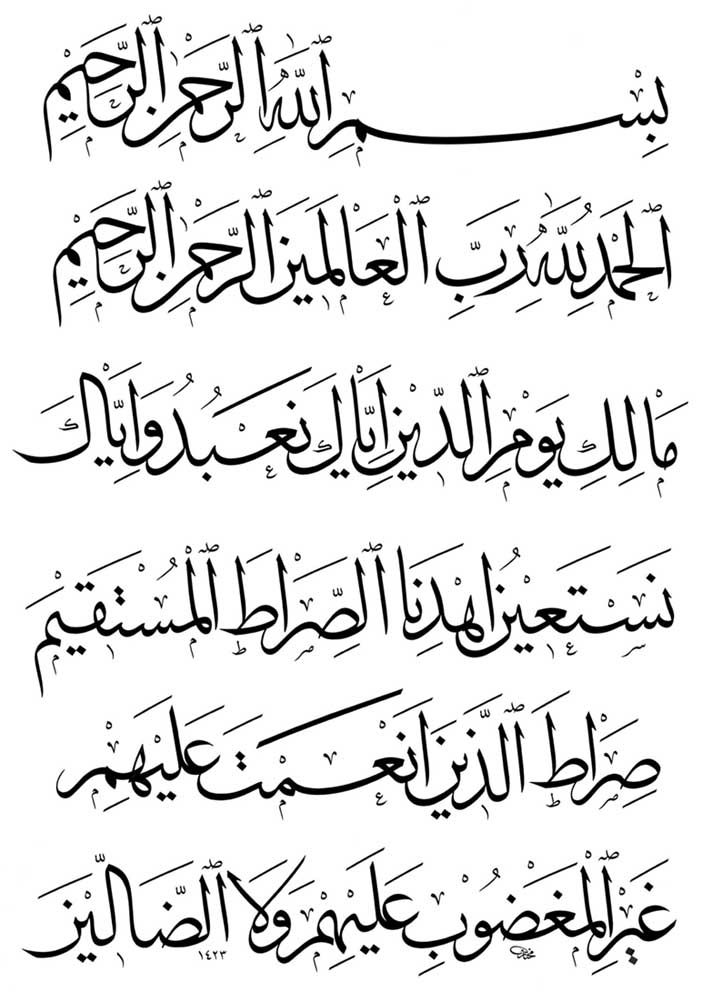 بِسْمِ ٱللَّهِ ٱلرَّحْمٰنِ ٱلرَّحِيمِ
ٱلْحَمْدُ لِلَّهِ رَبِّ ٱلْعَالَمِينَ ٱلرَّحْمٰنِ ٱلرَّحِيمِ
مَالِكِ يَوْمِ ٱلدِّينِ اِيَّاكَ نَعْبُدُ وَاِيَّاكَ
نَسْتَعِينُ اِهْدِنَا ٱلصِّرَاطَ ٱلْمُسْتَقِيمَ
صِرَاطَ ٱلَّذِينَ اَنْعَمْتَ عَلَيْهِمْ
غَيْرِ ٱلْمَغْضُوبِ عَلَيْهِمْ وَلَا ٱلضَّالِّينَ
١٤٢٣